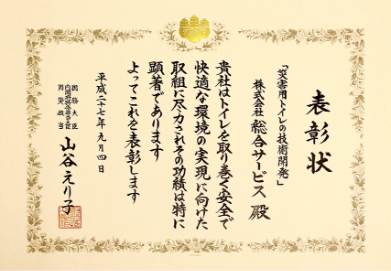 表彰状
「災害用トイレの技術開発」
株式会社 総合サービス 殿
貴社はトイレを取り巻く安全で
快適な環境の実現に向けた
取組に尽力されその功績は特に
顕著であります
よってこれを表彰します
平成二十七年九月四日
国務大臣
山谷えり子